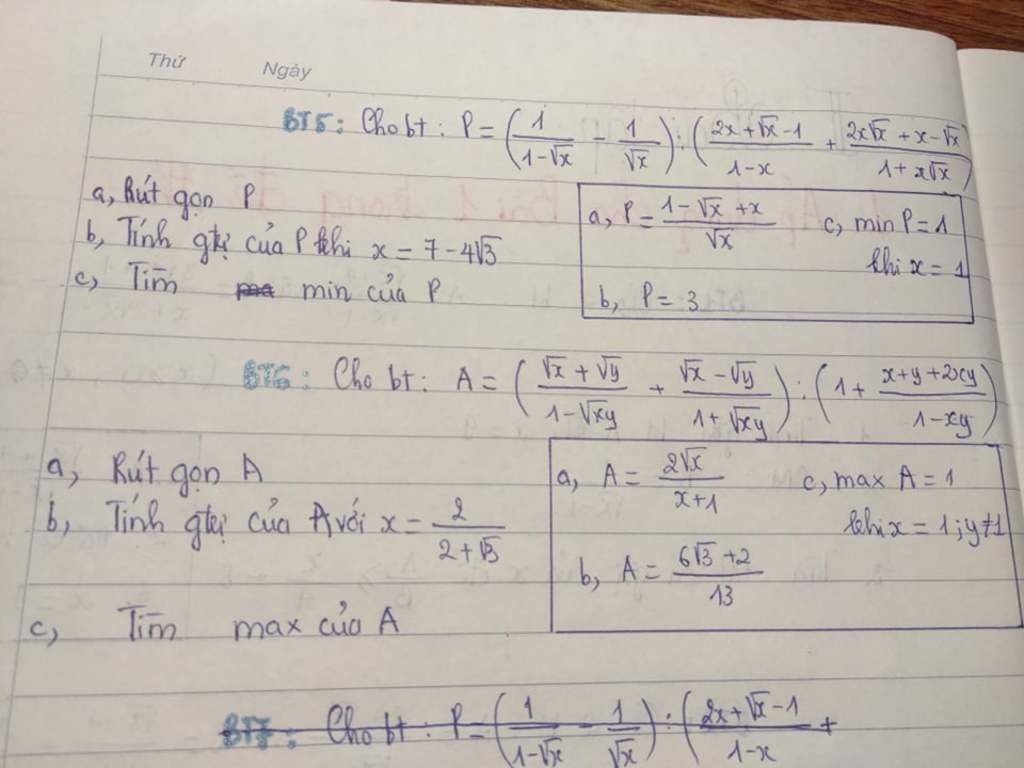 Thứ Ngày
BT5: Cho bt: P = (1/(1-√x) - 1/√x) : ((2x+√x-1)/(1-x) + (2x√x+x-√x)/(1+x√x))
a, Rút gọn P
b, Tính gtrị của P khi x = 7-4√3
c, Tìm min của P
a, P = (1-√x+x)/√x c, min P = 1
khi x = 1
b, P = 3
BT6: Cho bt: A = ((√x+√y)/(1-√xy) + (√x-√y)/(1+√xy)) : (1 + (x+y+2xy)/(1-xy))
a, Rút gọn A
b, Tính gtrị của A với x = 2/(2+√3)
c, Tìm max của A
a, A = 2√x/(x+1) c, max A = 1
khi x = 1; y≠1
b, A = (6√3+2)/13
BT7: Cho bt: P = (1/(1-√x) - 1/√x) : ((2x+√x-1)/(1-x) +